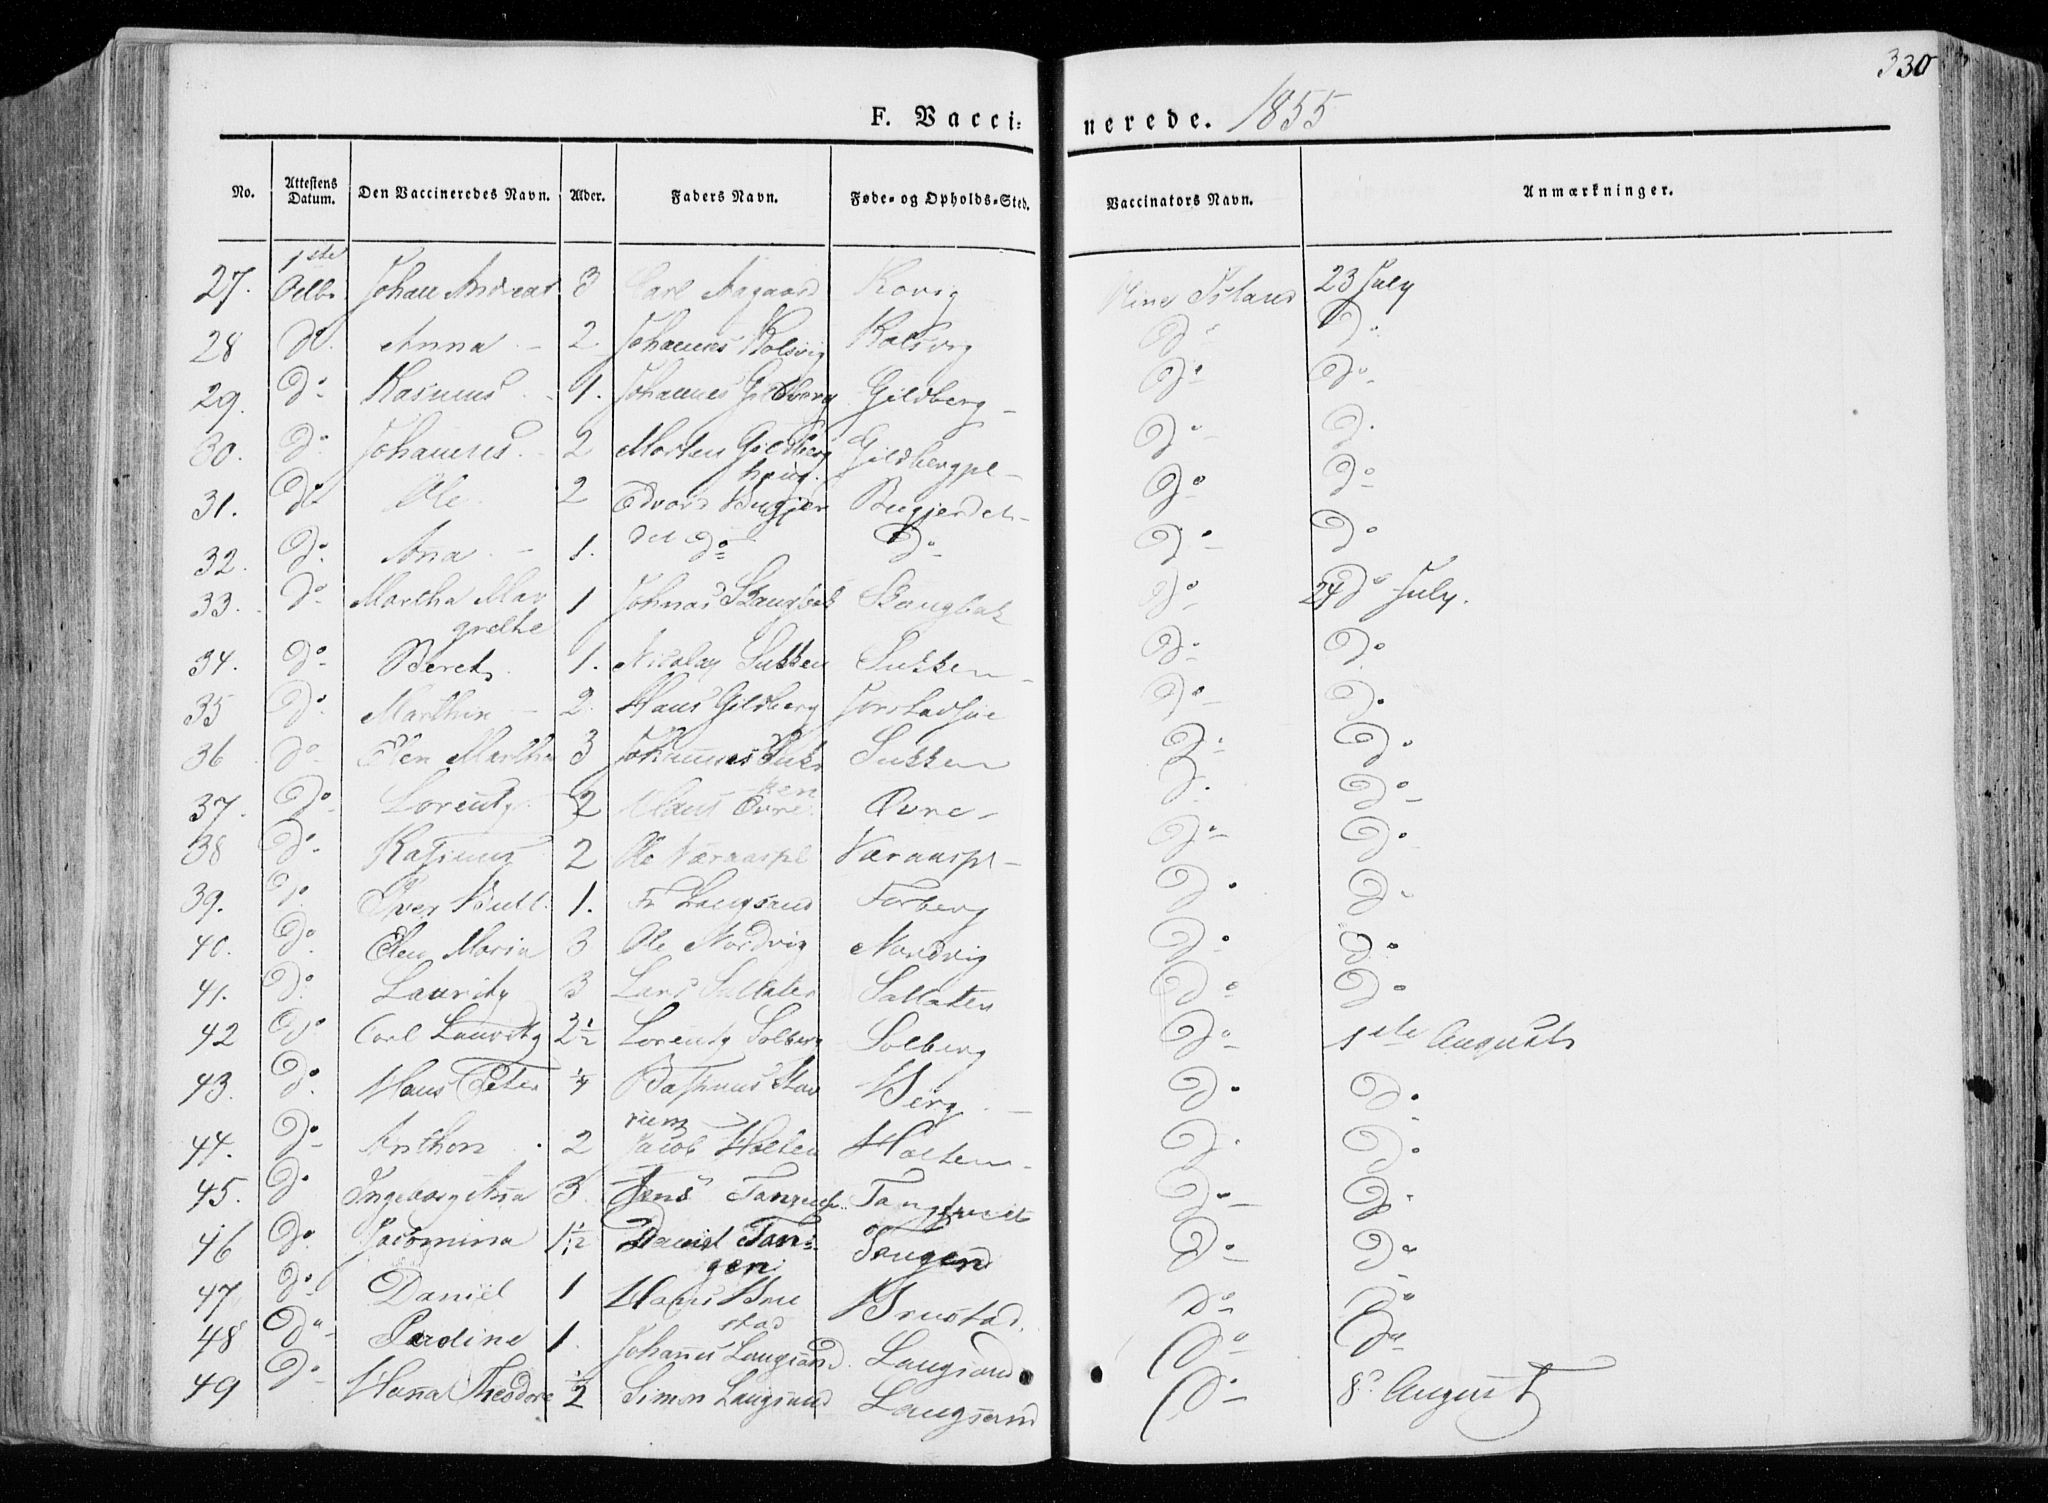 330
F. Vaccinerede. 1855
No. Attestens Datum. Den Vaccineredes Navn. Alder. Faders Navn. Føde- og Opholds-Sted. Vaccinators Navn. Anmærkninger.
27. 1ste Octbr Johan Andreas 3 Carl Aagaard Korsvig Island 23 July
28 do. Anna 2 Johannes Kolsvig Kolsvig Do Do
29. Do Rasmus 1. Johannes Gildberg Gildberg Do Do
30. Do Johannes 2 Morten Gildberg Gildbergpl Do Do
31. Do Ole 2 Edvard Bugjer Bugjerdet Do Do
32. Do Ana 1. det Do Do Do Do
33. Do Martha Mar 1 Johnas Skaugbak Skaugbak Do 24 Do July.
grethe
34. Do Beret 1. Nicolay Sukken Sukken Do Do
35 Do Marthin 2. Hans Gildberg Do Do
36 Do Elen Martha 3 Johannes Suk Sukken Do Do
ken
37. Do Lorentz 2 Claus Øvre Øvre Do Do
38 Do Rasmus 2 Ole Væraaspl Væraaspl Do Do
39. Do Iver Bull 1. Fr Langsand Forberg Do Do
40. Do Elen Maria 3 Ole Nordvig Nordvig Do Do
41. Do Lauritz 3 Lars Saltaten Saltaten Do Do
42 Do Carl Lauritz 2½ Lorentz Solberg Solberg Do 1ste August
43. Do Hans Peter ¼ Rasmus Berg Do Do
44. Do Anthon 2 Jacob Holten Holten Do Do
45. Do Ingeborg Ana 3 Jens Tangtveit Do Do
46 Do Jacomina 1½ Daniel Tan Tangen Do Do
gen
47 Do Daniel 1 Hans Bru Brustad. Do Do
stad
48 Do Pardine 1. Johanes Langsand Langsand Do Do
49 Do Hana Theodore ½ Simon Langsand Langsand Do 8de August